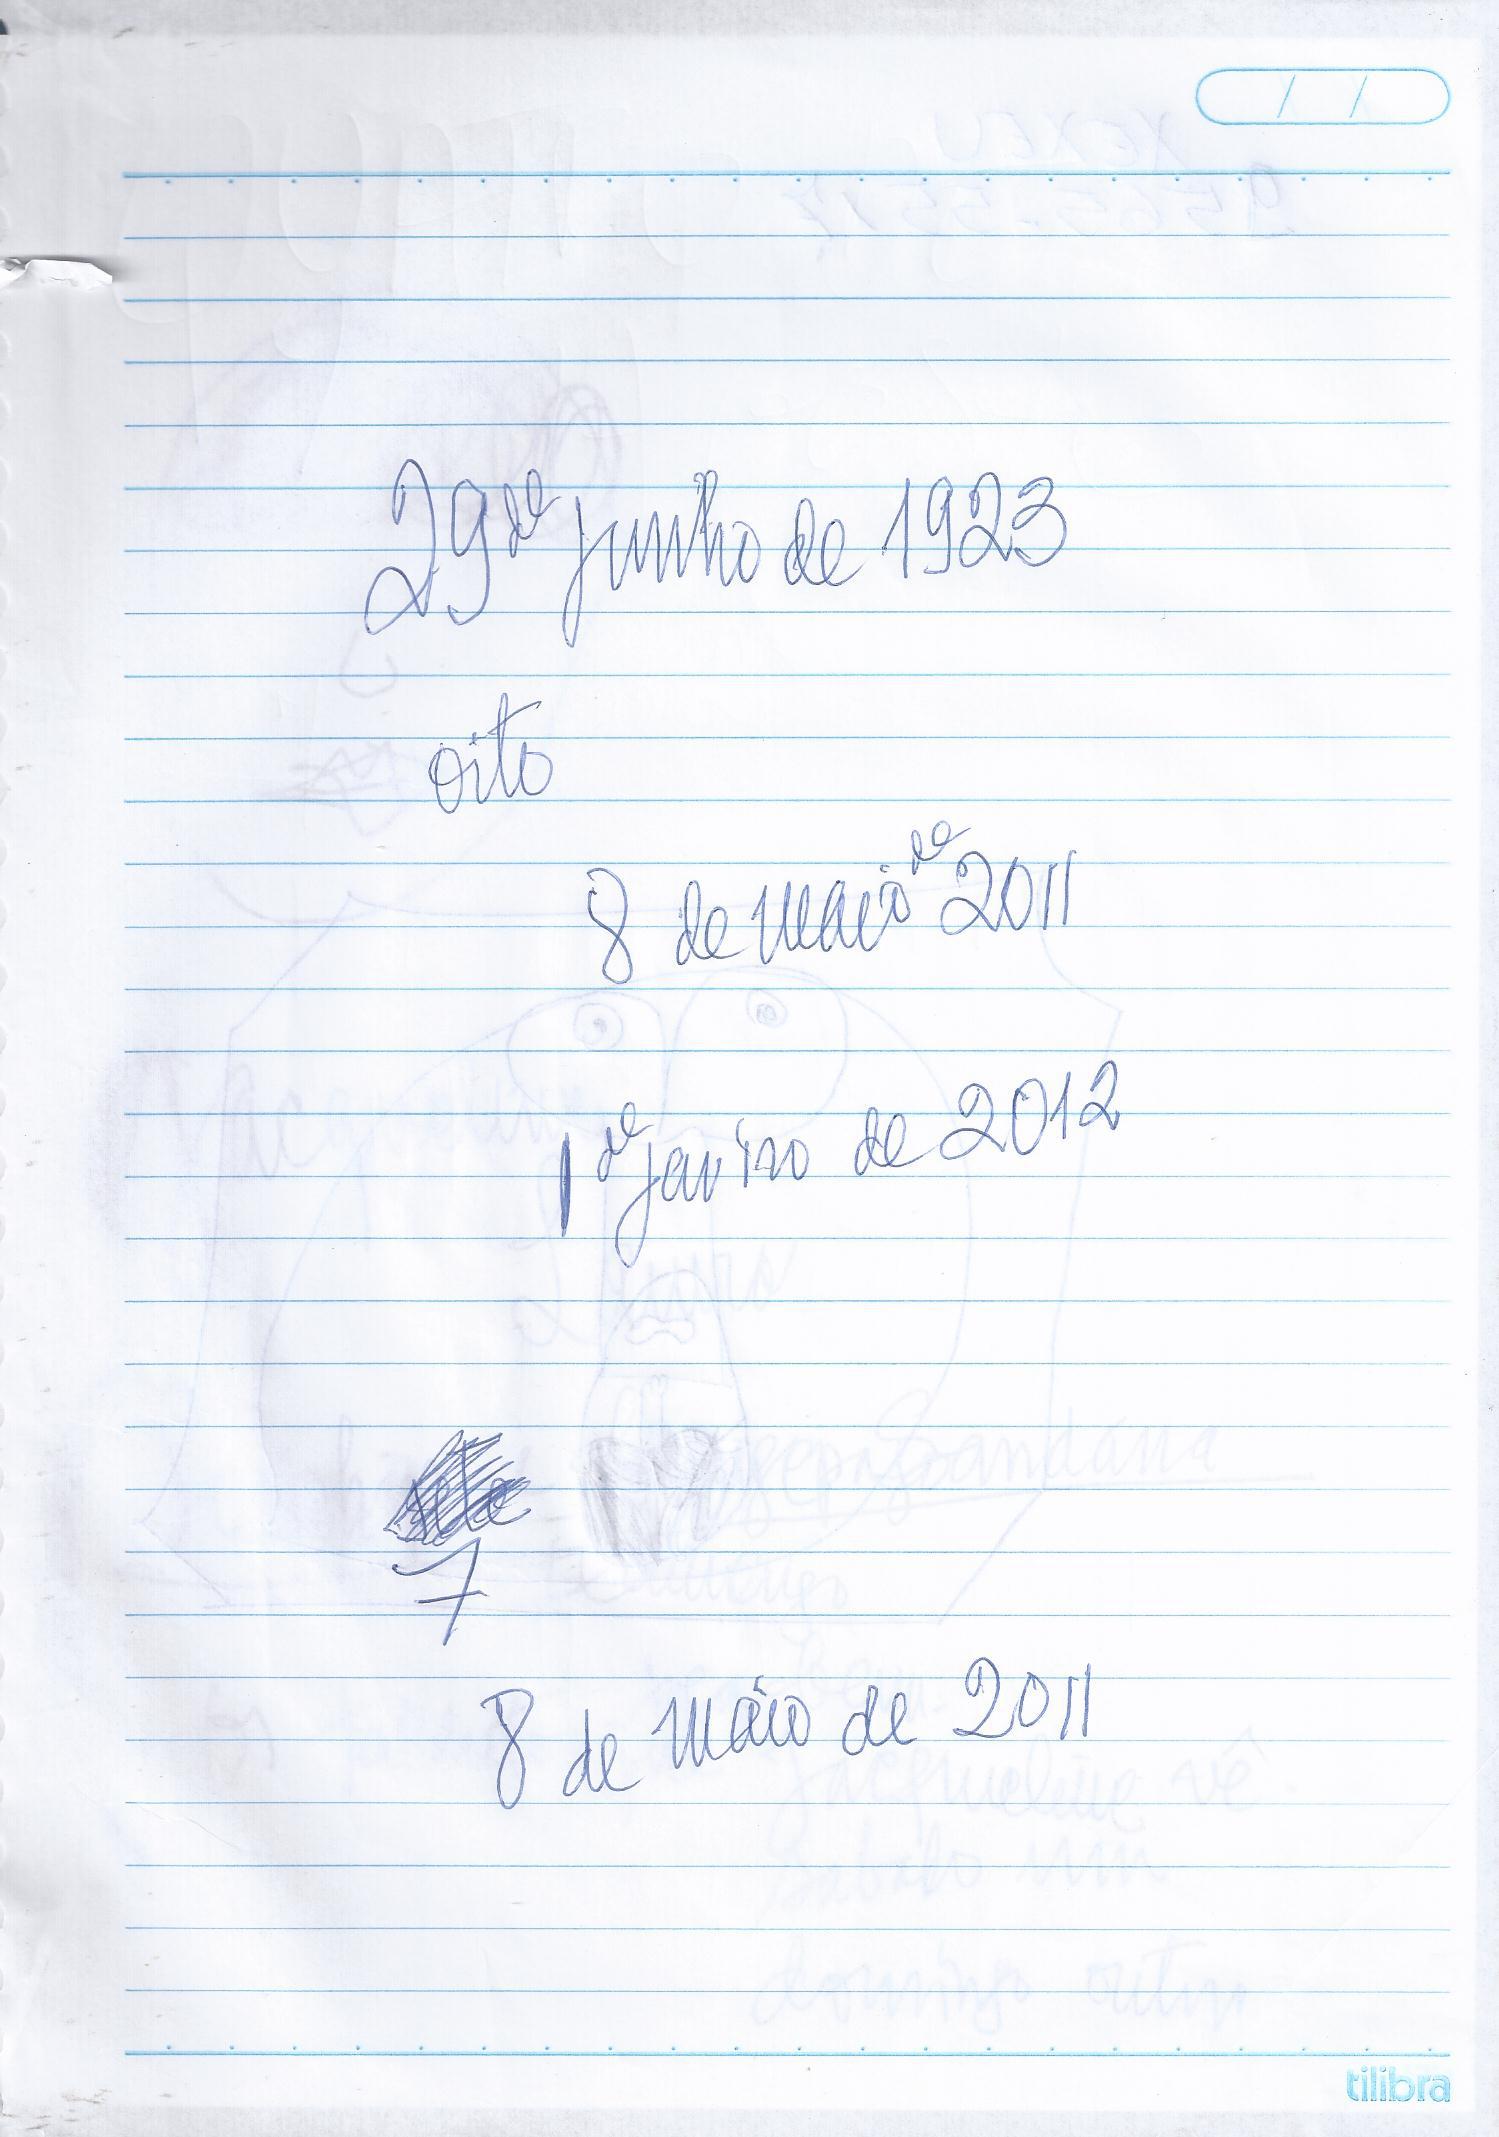 29 de junho de 1923
oito
8 de maio de 2011
1 de janiro de 2012
7
8 de maio de 2011
tilibra